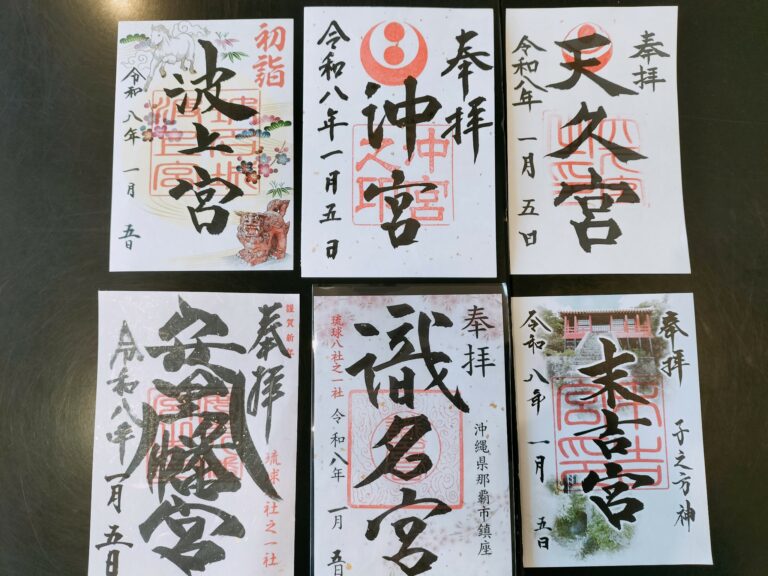 初詣
波上宮
令和八年 一月 五日
奉拝
沖宮
令和八年一月五日
沖宮之印
奉拝
天久宮
令和八年 一月 五日
謹賀新年
奉拝
琉球八社之一社
安里八幡宮
令和八年一月五日
奉拝
沖縄県那覇市鎮座
識名宮
琉球八社之一社
令和八年 一月 五日
奉拝
子之方神
末吉宮
令和八年 一月 五日